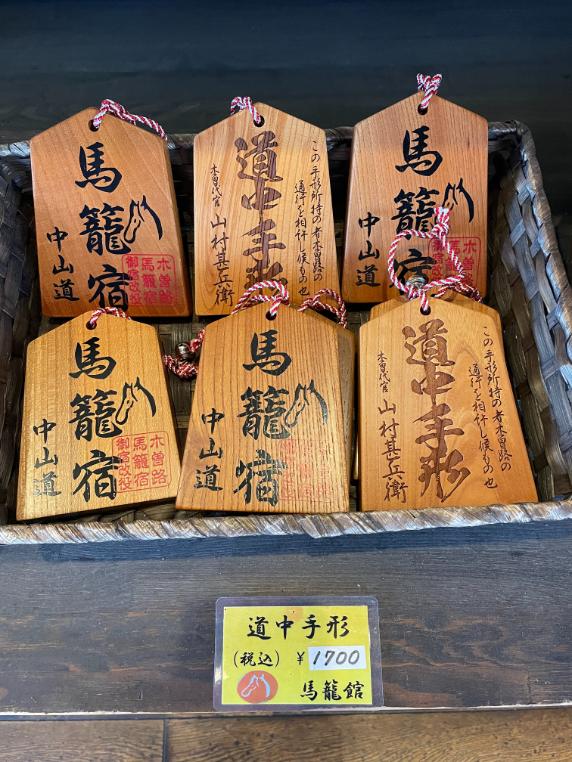 馬籠宿
中山道
木曽路
馬籠宿
御宿改役
道中手形
この手形所持の者木曽路の
通行を相許し候もの也
木曽代官 山村甚兵衛
馬籠宿
中山道
木曽路
馬籠宿
御宿改役
馬籠宿
中山道
木曽路
馬籠宿
御宿改役
馬籠宿
中山道
道中手形
この手形所持の者木曽路の
通行を相許し候もの也
木曽代官 山村甚兵衛
道中手形
(税込) ¥1700
馬籠館